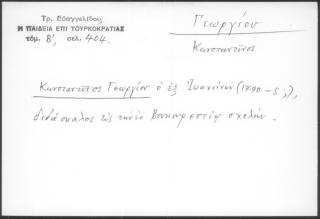 Τρ. Εὐαγγελίδου,
Η ΠΑΙΔΕΙΑ ΕΠΙ ΤΟΥΡΚΟΚΡΑΤΙΑΣ
τόμ. Β', σελ. 404.
Γεωργίου
Κωνσταντῖνος
Κωνσταντῖνος Γεωργίου ὁ ἐξ Ἰωαννίνων (1790-5;),
διδάσκαλος εἰς τὴν ἐν Βουκουρεστίῳ σχολήν.